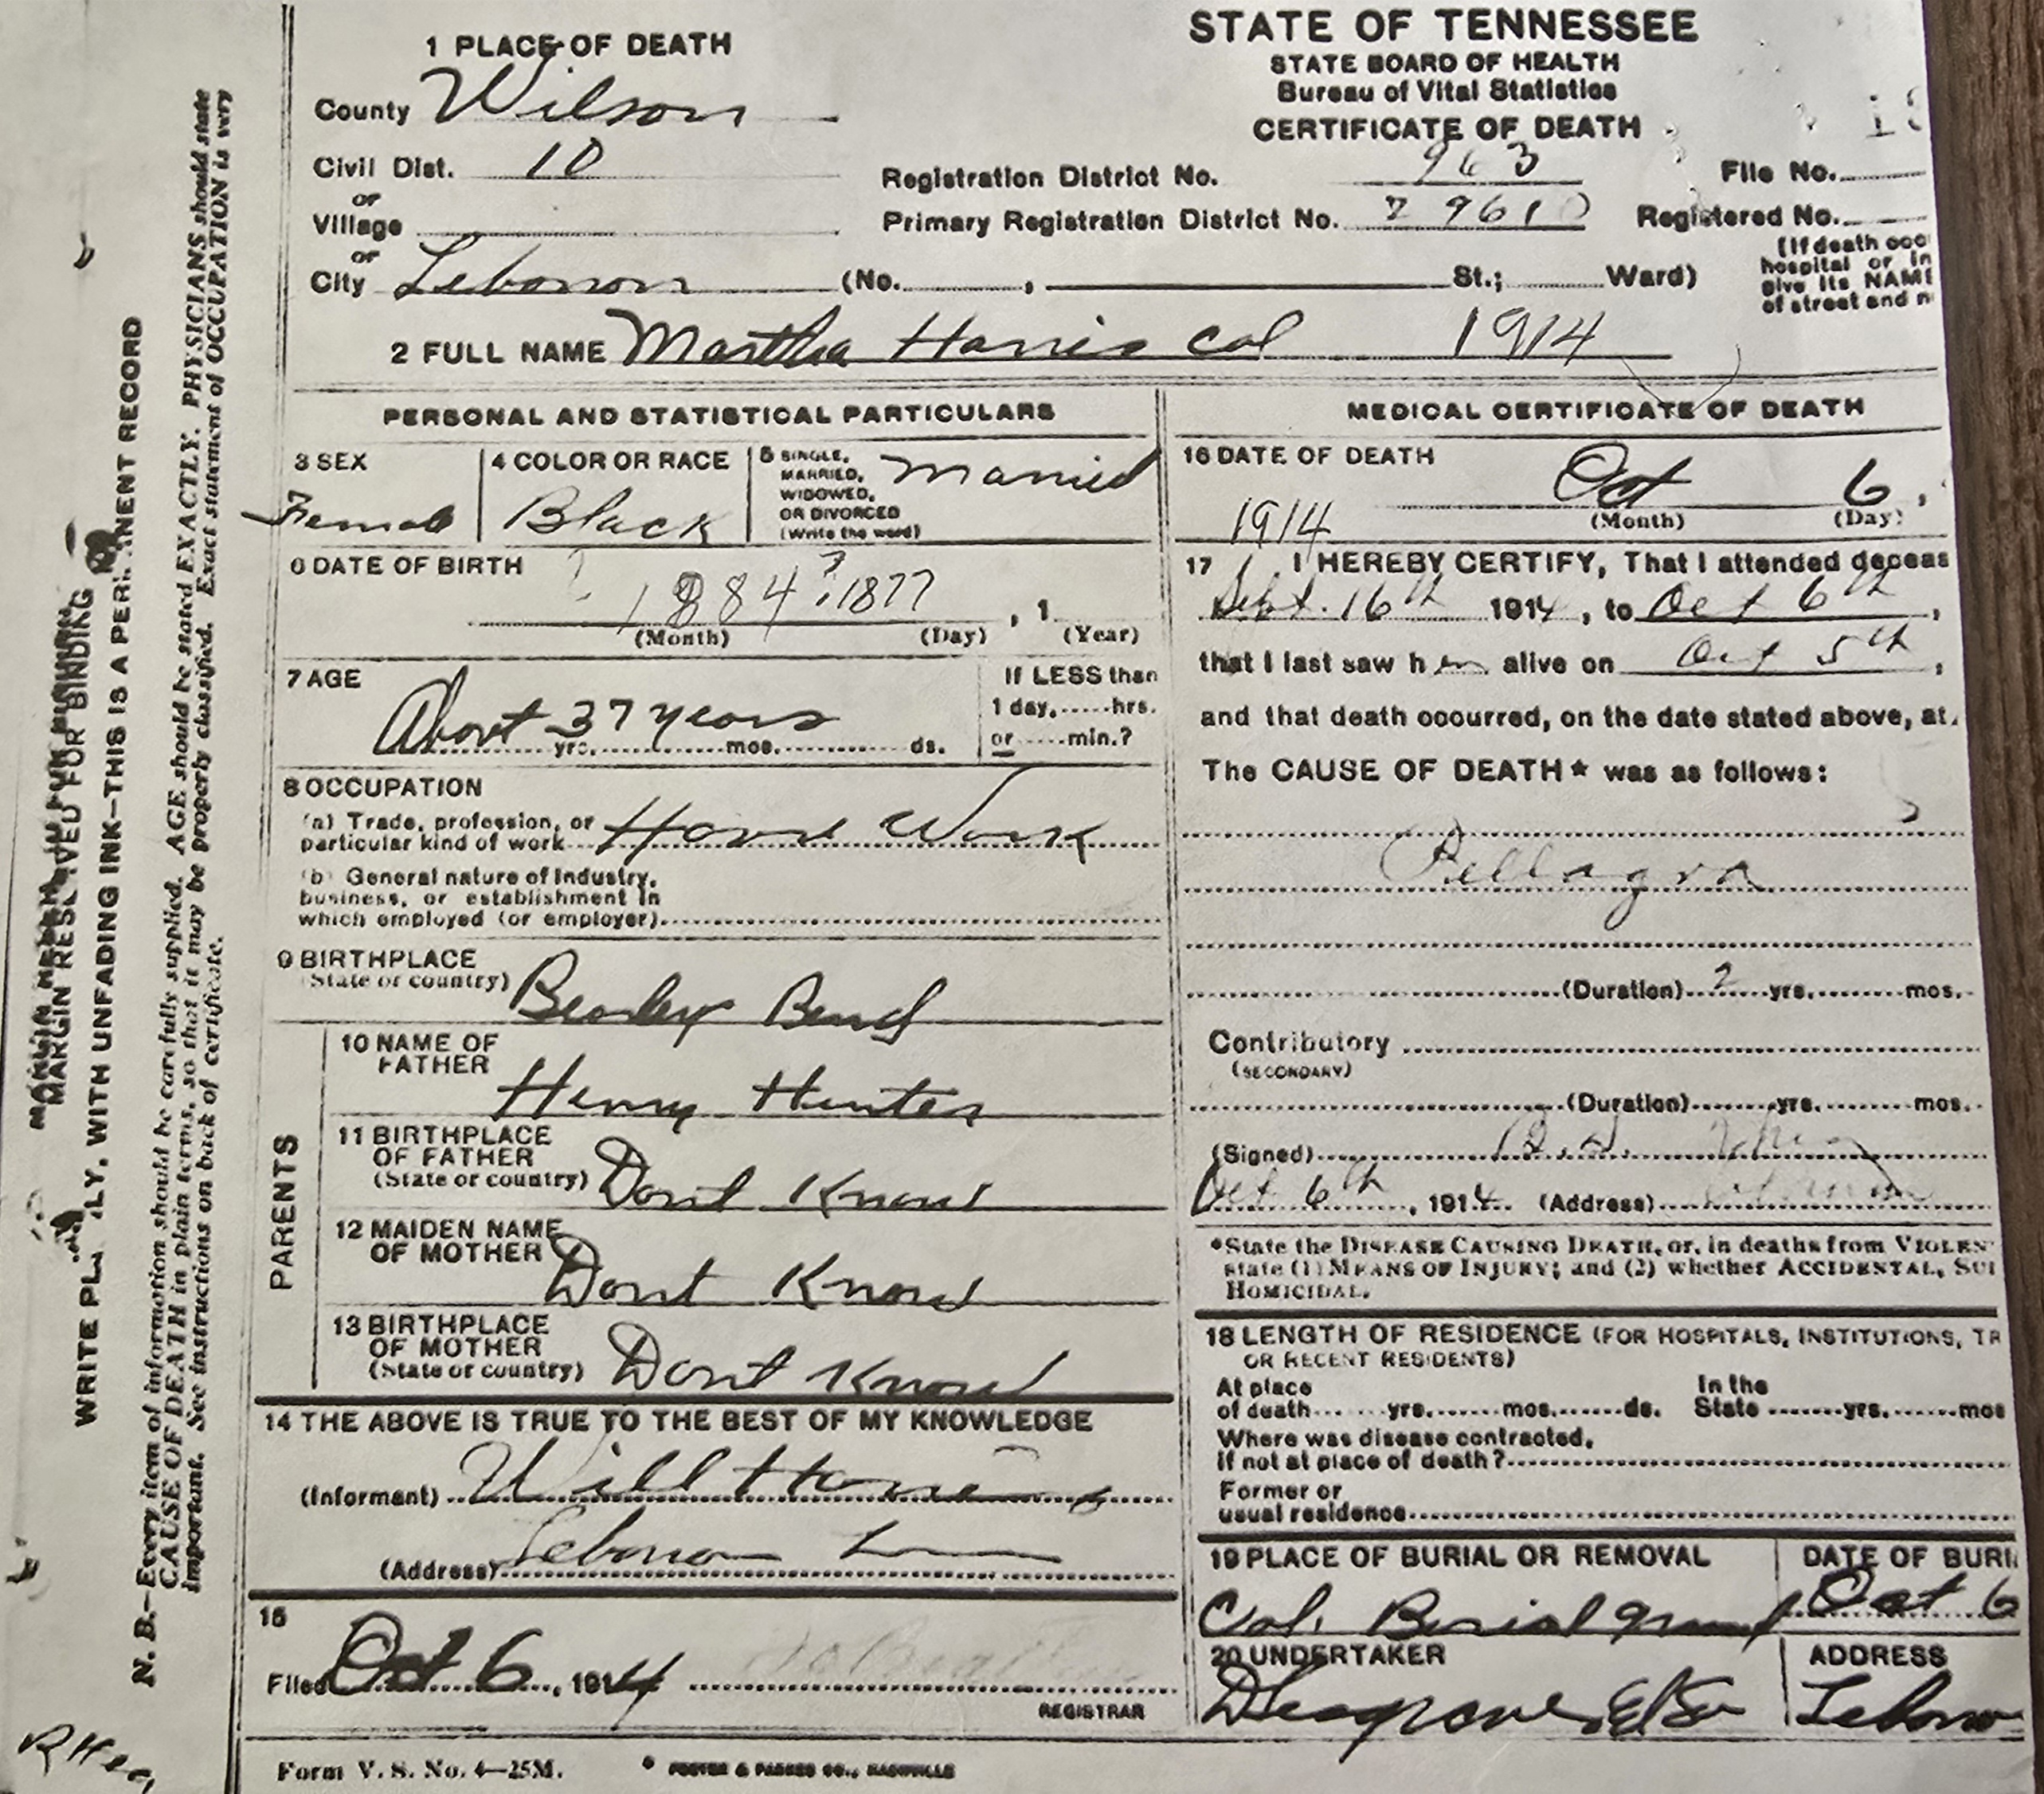 STATE OF TENNESSEE
STATE BOARD OF HEALTH
Bureau of Vital Statistics
CERTIFICATE OF DEATH
1 PLACE OF DEATH
County Wilson
Civil Dist. 10
or
Village
or
City Lebanon (No. , St.; Ward)
Registration District No. 963
Primary Registration District No.
File No.
Registered No.
(If death occ
hospital or in
give its NAME
of street and n
2 FULL NAME Martha Harris Col 1914
PERSONAL AND STATISTICAL PARTICULARS
3 SEX
Female
4 COLOR OR RACE
Black
5 SINGLE,
MARRIED,
WIDOWED,
OR DIVORCED
(Write the word)
Married
6 DATE OF BIRTH
1884 ? 1877
, 1
(Month) (Day) (Year)
7 AGE
About 37 years
yrs. mos. ds.
If LESS than
1 day, hrs.
or min.?
8 OCCUPATION
(a) Trade, profession, or
particular kind of work House Work
(b) General nature of Industry,
business, or establishment in
which employed (or employer)
9 BIRTHPLACE
(State or country) Beasley Bend
PARENTS
10 NAME OF
FATHER
Henry Hunter
11 BIRTHPLACE
OF FATHER
(State or country) Dont Know
12 MAIDEN NAME
OF MOTHER
Dont Know
13 BIRTHPLACE
OF MOTHER
(State or country) Dont Know
14 THE ABOVE IS TRUE TO THE BEST OF MY KNOWLEDGE
(Informant) Will Harris
(Address) Lebanon
15
Filed Oct 6, 1914
REGISTRAR
MEDICAL CERTIFICATE OF DEATH
16 DATE OF DEATH
Oct 6,
1914
(Month) (Day)
17 I HEREBY CERTIFY, That I attended deceas
Sept. 16th 1914, to Oct 6th,
that I last saw her alive on Oct 5th,
and that death occurred, on the date stated above, at
The CAUSE OF DEATH* was as follows:
Pellagra
(Duration) 2 yrs. mos.
Contributory
(SECONDARY)
(Duration) yrs. mos.
(Signed)
Oct 6th, 1914 (Address)
*State the DISEASE CAUSING DEATH, or, in deaths from VIOLEN
state (1) MEANS OF INJURY; and (2) whether ACCIDENTAL, SUI
HOMICIDAL.
18 LENGTH OF RESIDENCE (FOR HOSPITALS, INSTITUTIONS, TR
OR RECENT RESIDENTS)
At place
of death yrs. mos. ds.
In the
State yrs. mos
Where was disease contracted,
if not at place of death?
Former or
usual residence
19 PLACE OF BURIAL OR REMOVAL
Col. Burial ground
DATE OF BURI
Oct 6
20 UNDERTAKER
ADDRESS
Lebano
Form V. S. No. 4—25M.
FOSTER & PARKES CO., NASHVILLE
MARGIN RESERVED FOR BINDING
WRITE PLAINLY, WITH UNFADING INK—THIS IS A PERMANENT RECORD
N. B.—Every item of information should be carefully supplied. AGE should be stated EXACTLY. PHYSICIANS should state
CAUSE OF DEATH in plain terms, so that it may be properly classified. Exact statement of OCCUPATION is very
important. See instructions on back of certificate.